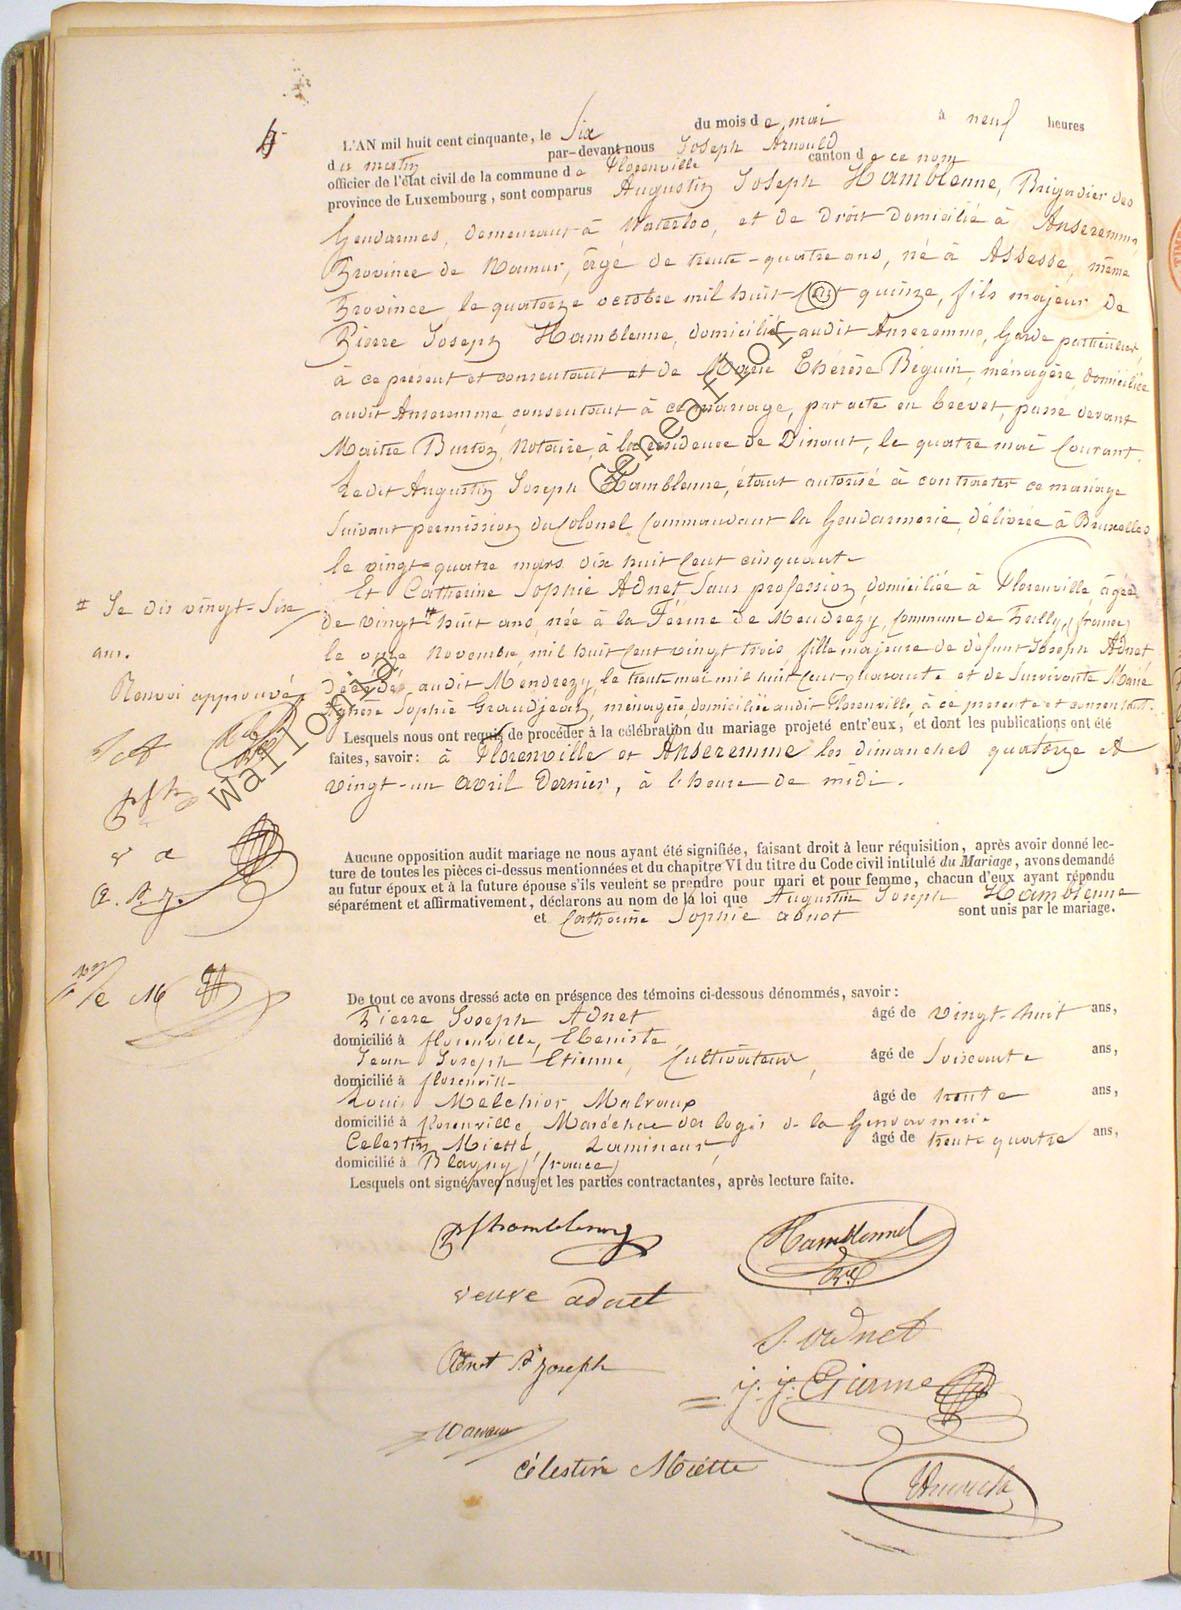 4
L'AN mil huit cent cinquante, le Six du mois de mai à neuf heures
du matin par-devant nous Joseph Arnould
officier de l'état civil de la commune de Florenville canton de ce nom
province de Luxembourg, sont comparus Augustin Joseph Hamblenne, Brigadier des
Gendarmes, demeurant à Waterloo, et de droit domicilié à Anseremme,
Province de Namur, âgé de trente-quatre ans, né à Assesse, même
Province, le quatorze octobre mil huit cent quinze, fils majeur de
Pierre Joseph Hamblenne, domicilié audit Anseremme, Garde particulier,
à ce présent et consentant et de Marie Thérèse Béguin, ménagère, domiciliée
audit Anseremme, consentant à ce mariage, par acte en brevet, passé devant
Maitre Burton, Notaire, à la résidence de Dinant, le quatre mai Courant.
Ledit Augustin Joseph Hamblenne, étant autorisé à contracter ce mariage
Suivant permission du Colonel Commandant la Gendarmerie, délivrée à Bruxelles
le vingt-quatre mars dix huit Cent cinquante
Et Catherine Sophie Adnet, Sans profession, domiciliée à Florenville, âgée
# Je dis vingt-Six
ans.
Renvoi approuvé
de vingt # huit ans, née à la Ferme de Mendrezy, Commune de (france)
le onze Novembre, mil huit Cent vingt trois, fille majeure de défunt Joseph Adnet
Décédé audit Mendrezy, le trente mai mil huit Cent quarante et de Survivante Marie
Sophie Grandjean, ménagère, domiciliée audit Florenville, à ce présente et consentant.
Lesquels nous ont requis de procéder à la célébration du mariage projeté entr'eux, et dont les publications ont été
faites, savoir : à Florenville et Anseremme les dimanches quatorze et
vingt-un avril dernier, à l'heure de midi.
S A
v a
Aucune opposition audit mariage ne nous ayant été signifiée, faisant droit à leur réquisition, après avoir donné lec-
ture de toutes les pièces ci-dessus mentionnées et du chapitre VI du titre du Code civil intitulé du Mariage, avons demandé
au futur époux et à la future épouse s'ils veulent se prendre pour mari et pour femme, chacun d'eux ayant répondu
séparément et affirmativement, déclarons au nom de la loi que Augustin Joseph Hamblenne
et Catherine Sophie adnet sont unis par le mariage.
De tout ce avons dressé acte en présence des témoins ci-dessous dénommés, savoir :
Pierre Joseph Adnet âgé de vingt-huit ans,
domicilié à florenville, Ebeniste,
Jean Joseph Etienne, Cultivateur, âgé de Soixante ans,
domicilié à florenville
Louis Melchior Malvaux âgé de trente ans,
domicilié à florenville, Maréchal des logis de la Gendarmerie
Celestin Miette, Lamineur, âgé de trente quatre ans,
domicilié à Blagny, (france)
Lesquels ont signé avec nous et les parties contractantes, après lecture faite.
Hamblenne
veuve adnet
S. adnet
Adnet P. Joseph
J. J. Etienne
célestin Miette
Geneaflor
wallonia